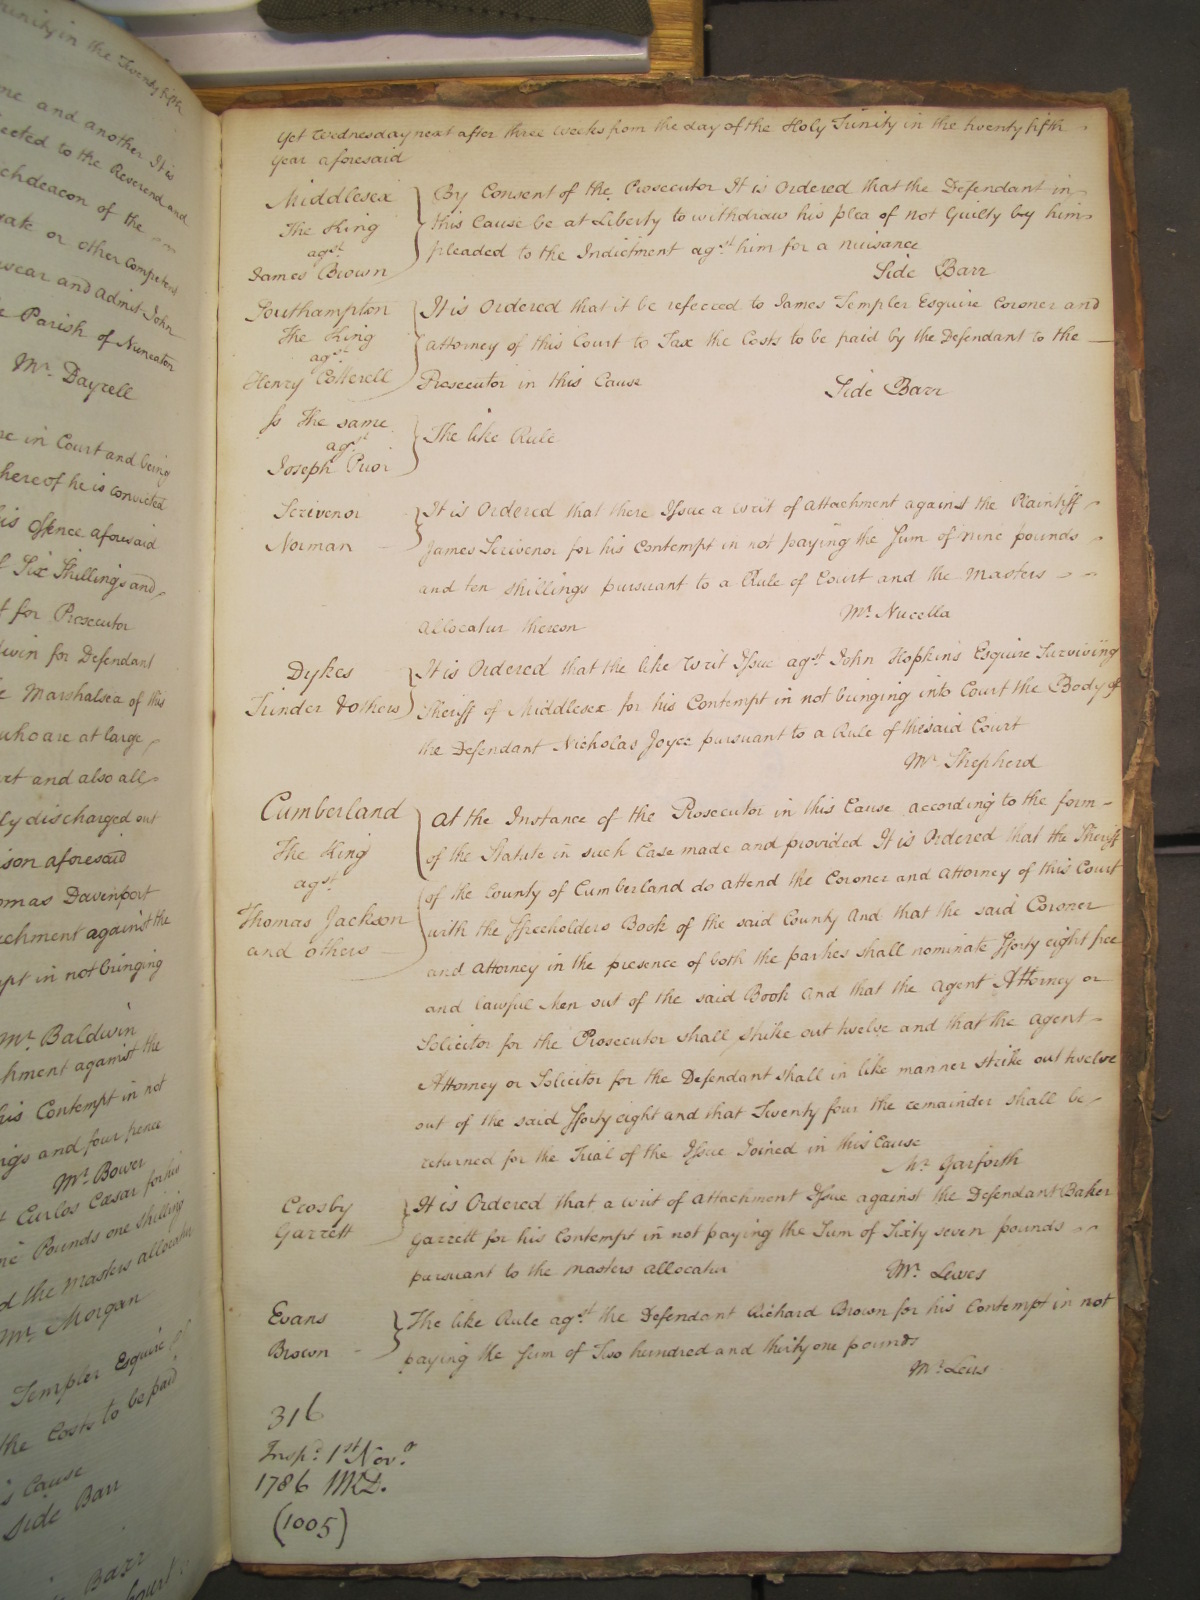 Trinity in the Twenty fifth
me and another It is
ected to the Reverend and
chdeacon of the
gate or other Competent
wear and Admit John
e Parish of Nuneaton
Mr. Dayrell
ne in Court and being
hereof he is convicted
is offence aforesaid
f Six Shillings and
t for Prosecutor
dwin for Defendant
e Marshalsea of this
who are at large
rt and also all
ly discharged out
ison aforesaid
omas Davenport
achment against the
mpt in not bringing
Mr. Baldwin
chment against the
his Contempt in not
ngs and four pence
Mr. Bower
t Carlos Cæsar for his
ne Pounds one shilling
d the Masters allocatur
Mr. Morgan
Templer Esquire
the Costs to be paid
s Cause
Side Barr
Barr
Court
Yet Wednesday next after three weeks from the day of the Holy Trinity in the twenty fifth
Year aforesaid
Middlesex
The King
agst.
James Brown
By Consent of the Prosecutor It is Ordered that the Defendant in
this Cause be at Liberty to withdraw his plea of not Guilty by him
pleaded to the Indictment agst. him for a nuisance
Side Barr
Southampton
The King
agst.
Henry Cotterell
It is Ordered that it be referred to James Templer Esquire Coroner and
attorney of this Court to Tax the Costs to be paid by the Defendant to the
Prosecutor in this Cause
Side Barr
Ss The same
agst.
Joseph Prior
The like Rule
Scrivenor
Norman
It is Ordered that there Issue a writ of attachment against the Plaintiff
James Scrivenor for his Contempt in not paying the Sum of nine pounds
and ten shillings pursuant to a Rule of Court and the Masters
allocatur thereon
Mr. Nucella
Dykes
Trinder & others
It is Ordered that the like Writ Issue agst. John Hopkins Esquire Surviving
Sheriff of Middlesex for his Contempt in not bringing into Court the Body of
the Defendant Nicholas Joyce pursuant to a Rule of the said Court
Mr. Shepherd
Cumberland
The King
agst.
Thomas Jackson
and others
At the Instance of the Prosecutor in this Cause according to the form
of the Statute in such Case made and provided It is Ordered that the Sheriff
of the County of Cumberland do attend the Coroner and Attorney of this Court
with the Freeholders Book of the said County And that the said Coroner
and Attorney in the presence of both the parties shall nominate fforty eight free
and lawful Men out of the said Book And that the agent Attorney or
Solicitor for the Prosecutor shall strike out twelve and that the agent
Attorney or Solicitor for the Defendant shall in like manner strike out twelve
out of the said fforty eight and that Twenty four the remainder shall be
returned for the Trial of the Issue Joined in this Cause
Mr. Garforth
Crosby
Garrett
It is Ordered that a writ of attachment Issue against the Defendant Baker
Garrett for his Contempt in not paying the Sum of Sixty seven pounds
pursuant to the Masters allocatur
Mr. Lewes
Evans
Brown
The like Rule agst. the Defendant Richard Brown for his Contempt in not
paying the Sum of Two hundred and thirty one pounds
Mr. Lewis
316
Insp.d 1st Nov.r
1786
(1005)